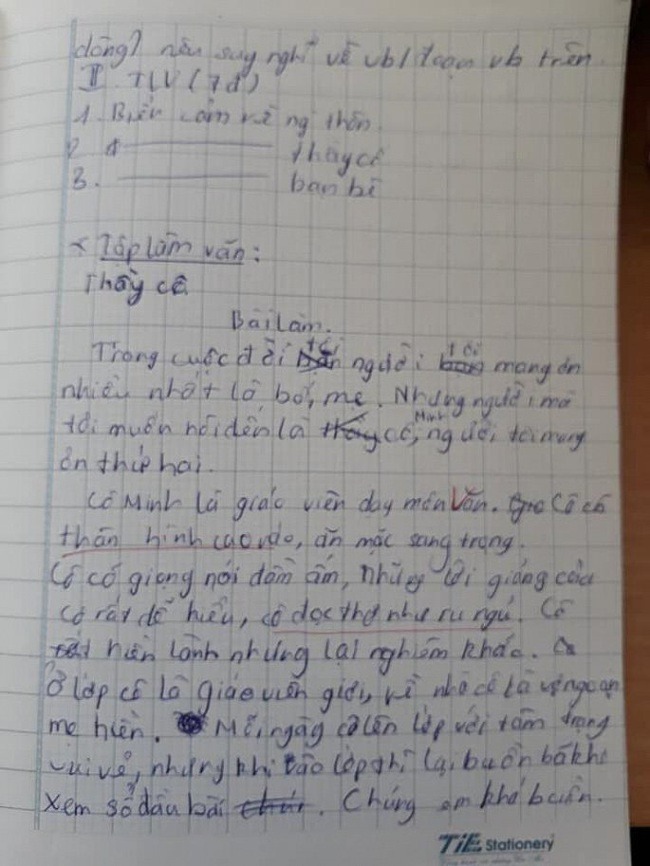 dòng) nêu suy nghĩ về vb/đoạn vb trên
II TLV (7đ)
1. Biểu cảm về ng thân
2 thầy cô
3. bạn bè
* Tập làm văn:
Thầy cô
Bài làm.
Trong cuộc đời tôi người tôi mang ơn
nhiều nhất là bố, mẹ. Nhưng người mà
tôi muốn nói đến là cô Minh, người tôi mang
ơn thứ hai.
Cô Minh là giáo viên dạy môn Văn. Cô có
thân hình cao ráo, ăn mặc sang trọng.
Cô có giọng nói đầm ấm, những lời giảng của
cô rất dễ hiểu, cô đọc thơ như ru ngủ. Cô
hiền lành nhưng lại nghiêm khắc.
Ở lớp cô là giáo viên giỏi, về nhà cô là vợ ngoan
mẹ hiền. Mỗi ngày cô lên lớp với tâm trạng
vui vẻ, nhưng khi vào lớp thì lại buồn bã khi
xem sổ đầu bài. Chúng em khá buồn.
TiE Stationery